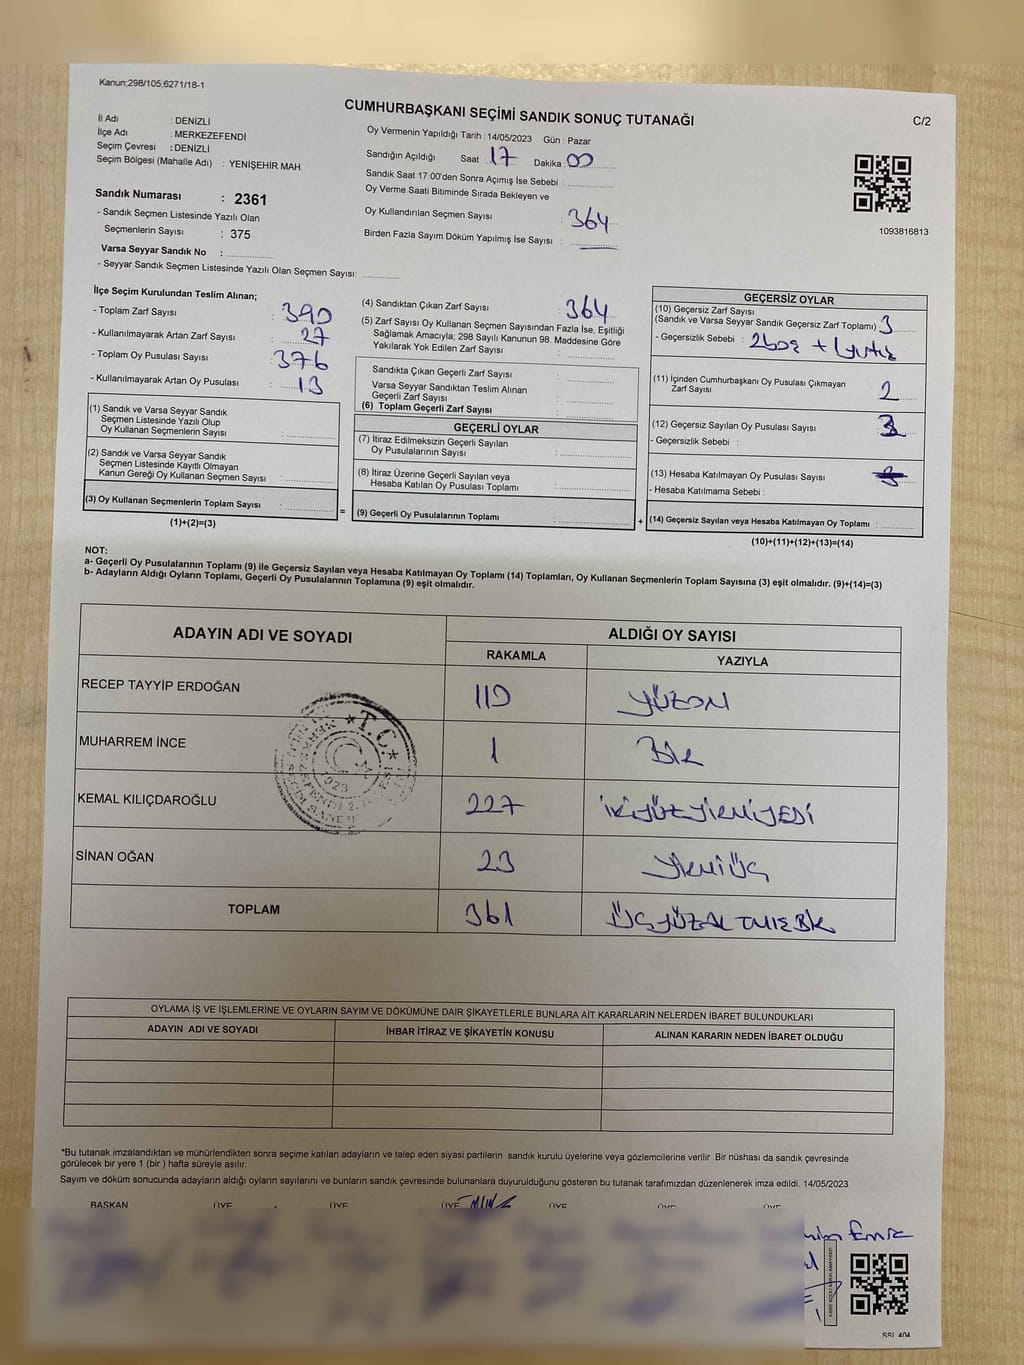 Kanun;298/105;6271/18-1
CUMHURBAŞKANI SEÇİMİ SANDIK SONUÇ TUTANAĞI
C/2
İl Adı : DENİZLİ
İlçe Adı : MERKEZEFENDİ
Seçim Çevresi : DENİZLİ
Seçim Bölgesi (Mahalle Adı) : YENİŞEHİR MAH.
Sandık Numarası : 2361
- Sandık Seçmen Listesinde Yazılı Olan
Seçmenlerin Sayısı : 375
Varsa Seyyar Sandık No :
- Seyyar Sandık Seçmen Listesinde Yazılı Olan Seçmen Sayısı:
Oy Vermenin Yapıldığı Tarih : 14/05/2023 Gün : Pazar
Sandığın Açıldığı Saat 17 Dakika : 00
Sandık Saat 17:00'den Sonra Açımış İse Sebebi :
Oy Verme Saati Bitiminde Sırada Bekleyen ve
Oy Kullandırılan Seçmen Sayısı : 364
Birden Fazla Sayım Döküm Yapılmış İse Sayısı :
1093816813
İlçe Seçim Kurulundan Teslim Alınan;
- Toplam Zarf Sayısı : 390
- Kullanılmayarak Artan Zarf Sayısı : 27
- Toplam Oy Pusulası Sayısı : 376
- Kullanılmayarak Artan Oy Pusulası : 13
(1) Sandık ve Varsa Seyyar Sandık
Seçmen Listesinde Yazılı Olup
Oy Kullanan Seçmenlerin Sayısı :
(2) Sandık ve Varsa Seyyar Sandık
Seçmen Listesinde Kayıtlı Olmayan
Kanun Gereği Oy Kullanan Seçmen Sayısı :
(3) Oy Kullanan Seçmenlerin Toplam Sayısı :
(1)+(2)=(3)
(4) Sandıktan Çıkan Zarf Sayısı : 364
(5) Zarf Sayısı Oy Kullanan Seçmen Sayısından Fazla İse, Eşitliği
Sağlamak Amacıyla; 298 Sayılı Kanunun 98. Maddesine Göre
Yakılarak Yok Edilen Zarf Sayısı :
Sandıkta Çıkan Geçerli Zarf Sayısı :
Varsa Seyyar Sandıktan Teslim Alınan
Geçerli Zarf Sayısı :
(6) Toplam Geçerli Zarf Sayısı :
GEÇERLİ OYLAR
(7) İtiraz Edilmeksizin Geçerli Sayılan
Oy Pusulalarının Sayısı :
(8) İtiraz Üzerine Geçerli Sayılan veya
Hesaba Katılan Oy Pusulası Toplamı :
= (9) Geçerli Oy Pusulalarının Toplamı :
GEÇERSİZ OYLAR
(10) Geçersiz Zarf Sayısı
(Sandık ve Varsa Seyyar Sandık Geçersiz Zarf Toplamı) : 3
- Geçersizlik Sebebi : 2boş + 1yırtık
(11) İçinden Cumhurbaşkanı Oy Pusulası Çıkmayan
Zarf Sayısı : 2
(12) Geçersiz Sayılan Oy Pusulası Sayısı :
- Geçersizlik Sebebi :
(13) Hesaba Katılmayan Oy Pusulası Sayısı :
- Hesaba Katılmama Sebebi :
+ (14) Geçersiz Sayılan veya Hesaba Katılmayan Oy Toplamı :
(10)+(11)+(12)+(13)=(14)
NOT:
a- Geçerli Oy Pusulalarının Toplamı (9) ile Geçersiz Sayılan veya Hesaba Katılmayan Oy Toplamı (14) Toplamları, Oy Kullanan Seçmenlerin Toplam Sayısına (3) eşit olmalıdır. (9)+(14)=(3)
b- Adayların Aldığı Oyların Toplamı, Geçerli Oy Pusulalarının Toplamına (9) eşit olmalıdır.
ADAYIN ADI VE SOYADI ALDIĞI OY SAYISI
RAKAMLA YAZIYLA
RECEP TAYYİP ERDOĞAN 110 YÜZON
MUHARREM İNCE 1 BİR
KEMAL KILIÇDAROĞLU 227 İKİYÜZYİRMİYEDİ
SİNAN OĞAN 23 YİRMİÜÇ
TOPLAM 361 ÜÇYÜZALTMIŞBİR
OYLAMA İŞ VE İŞLEMLERİNE VE OYLARIN SAYIM VE DÖKÜMÜNE DAİR ŞİKAYETLERLE BUNLARA AİT KARARLARIN NELERDEN İBARET BULUNDUKLARI
ADAYIN ADI VE SOYADI İHBAR İTİRAZ VE ŞİKAYETİN KONUSU ALINAN KARARIN NEDEN İBARET OLDUĞU
*Bu tutanak imzalandıktan ve mühürlendikten sonra seçime katılan adayların ve talep eden siyasi partilerin sandık kurulu üyelerine veya gözlemcilerine verilir. Bir nüshası da sandık çevresinde
görülecek bir yere 1 (bir ) hafta süreyle asılır.
Sayım ve döküm sonucunda adayların aldığı oyların sayılarını ve bunların sandık çevresinde bulunanlara duyurulduğunu gösteren bu tutanak tarafımızdan düzenlenerek imza edildi. 14/05/2023
BAŞKAN ÜYE ÜYE ÜYE ÜYE ÜYE ÜYE
Emre